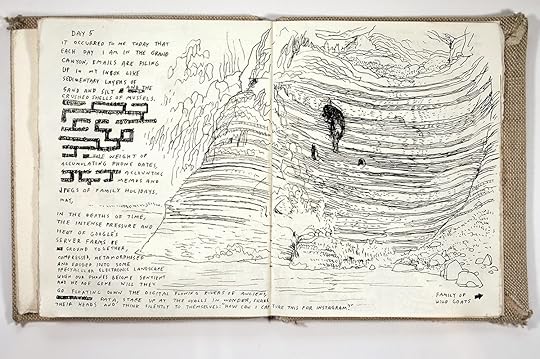 DAY 5
IT OCCURRED TO ME TODAY THAT
EACH DAY I AM IN THE GRAND
CANYON, EMAILS ARE PILING
UP IN MY INBOX LIKE
SEDIMENTARY LAYERS OF
SAND AND SILT AND THE
CRUSHED SHELLS OF MUSSELS.
THE WEIGHT OF
ACCUMULATING PHONE DATES,
ACCOUNTING
MEMOS AND
JPEGS OF FAMILY HOLIDAYS,
MAY,
IN THE DEPTHS OF TIME,
THE INTENSE PRESSURE AND
HEAT OF GOOGLE'S
SERVER FARMS BE
GROUND TOGETHER,
COMPRESSED, METAMORPHOSED
AND ERODED INTO SOME
SPECTACULAR ELECTRONIC LANDSCAPE
WHEN OUR PHONES BECOME SENTIENT
AND WE ARE GONE WILL THEY
GO FLOATING DOWN THE DIGITAL FLOWING RIVERS OF ANCIENT
DATA, STARE UP AT THE WALLS IN WONDER, SHAKE
THEIR HEADS AND THINK SILENTLY TO THEMSELVES: "HOW CAN I CAPTURE THIS FOR INSTAGRAM?"
FAMILY OF
WILD GOATS